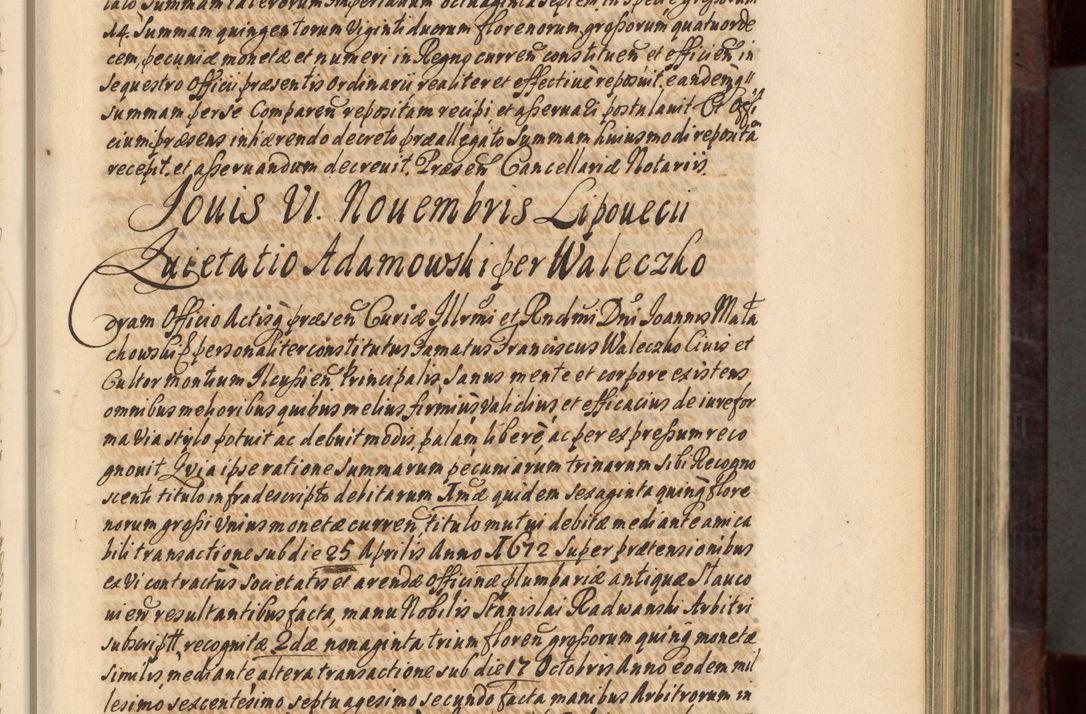 lato Summam talerorum Imperialium octuaginta septem in specie grossorum
14. Summam quingentorum Viginti duorum florenorum, grossorum quatuorde
cem, pecuniæ monetæ et numeri in Regno curren̄ constituen̄ et efficien̄ in
sequestro Officii præsentis Ordinarii realiter et effective reposuit, eandemq̃
summam per se Comparen̄ repositam recipi et asservari postulavit. Et Offi
cium præsens inhærendo decreto præallegato Summam huiusmodi repositā
recepit, et asservandum decrevit. Præsen̄ Cancellariæ Notariis.
Jovis VI. Novembris Lipovecii
Quietatio Adamowski per Waleczko
Coram Officio Actisq̃ præsen̄ Curiæ Illrmi et Rndmi Dni Joannis Mała
chowski &c personaliter constitutus Famatus Franciscus Waleczko Civis et
Cultor montium Ilcusien̄ Principalis, sanus mente et corpore existens
omnibus melioribus quibus melius firmius validius, et efficacius de iure for
ma via stylo potuit ac debuit modis, palam libere, ac per expressum reco
gnovit. Quia ipse ratione Summarum pecuniarum trinarum sibi Recogno
scenti titulo infradescripto debitarum 1mæ quidem sexaginta quinq̃ flore
norum grossi Unius monetæ curren̄, titulo mutui debitæ mediante amica
bili transactione sub die 25 Aprilis Anno 1672 super prætensionibus
ex vi contractus societatis et arendæ Officinæ plumbariæ antiquæ Stauco
vien̄ resultantibus facta, manu Nobilis Stanislai Radwanski Arbitri
subscript, recognitæ 2dæ nonaginta trium floren̄ grossorum quinq̃ monetæ
similis, mediante altera transactione sub die 17 Octobris Anno eodem mil
lesimo sexcentesimo septuagesimo secundo facta manibus Arbitrorum in